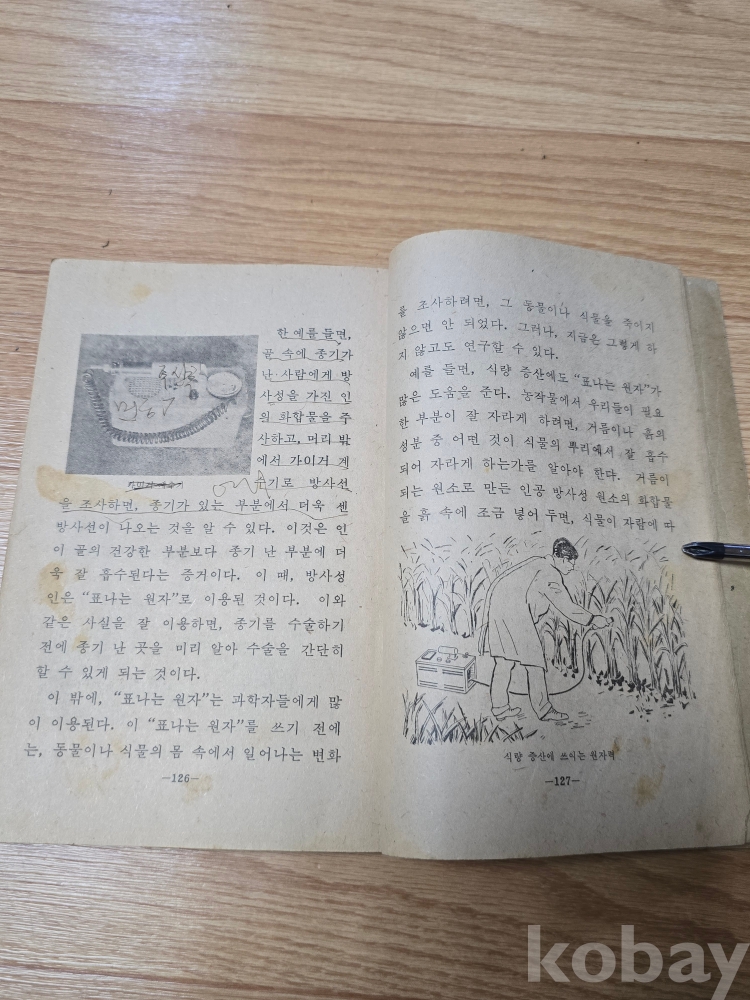 한 예를 들면,
골 속에 종기가
난 사람에게 방
사성을 가진 인
의 화합물을 주
사하고, 머리 밖
에서 가이거 계
기로 방사선
을 조사하면, 종기가 있는 부분에서 더욱 센
방사선이 나오는 것을 알 수 있다. 이것은 인
이 골의 건강한 부분보다 종기 난 부분에 더
욱 잘 흡수된다는 증거이다. 이 때, 방사성
인은 “표나는 원자”로 이용된 것이다. 이와
같은 사실을 잘 이용하면, 종기를 수술하기
전에 종기 난 곳을 미리 알아 수술을 간단히
할 수 있게 되는 것이다.
이 밖에, “표나는 원자”는 과학자들에게 많
이 이용된다. 이 “표나는 원자”를 쓰기 전에
는, 동물이나 식물의 몸 속에서 일어나는 변화
—126—
를 조사하려면, 그 동물이나 식물을 죽이지
않으면 안 되었다. 그러나, 지금은 그렇게 하
지 않고도 연구할 수 있다.
예를 들면, 식량 증산에도 “표나는 원자”가
많은 도움을 준다. 농작물에서 우리들이 필요
한 부분이 잘 자라게 하려면, 거름이나 흙의
성분 중 어떤 것이 식물의 뿌리에서 잘 흡수
되어 자라게 하는가를 알아야 한다. 거름이
되는 원소로 만든 인공 방사성 원소의 화합물
을 흙 속에 조금 넣어 두면, 식물이 자람에 따
식량 증산에 쓰이는 원자력
—127—
kobay